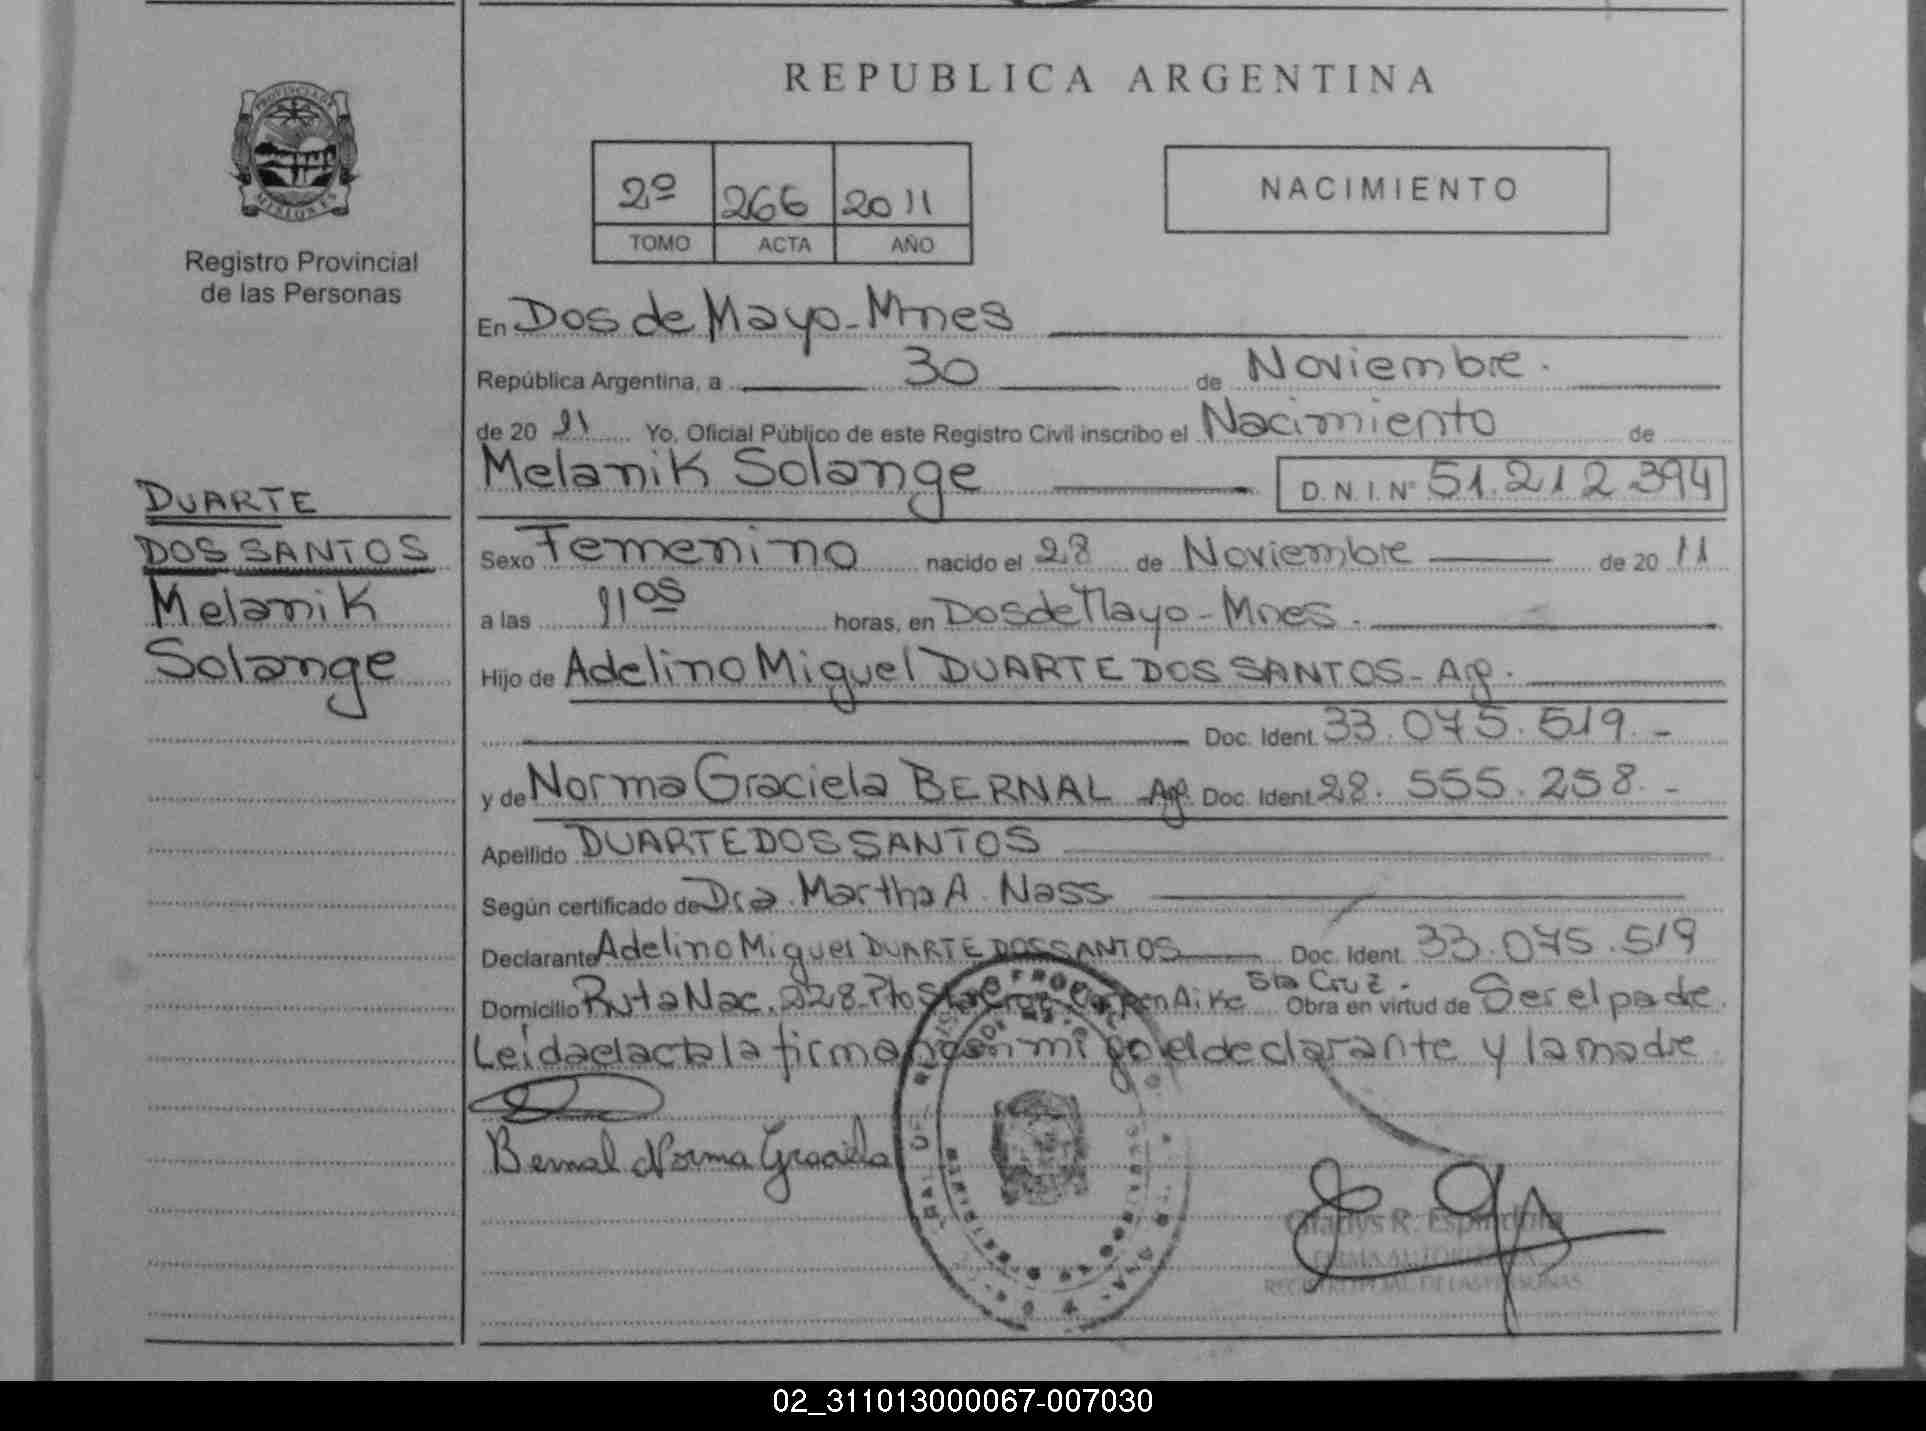 REPUBLICA ARGENTINA
PROVINCIA DE
MISIONES
Registro Provincial
de las Personas
2º 266 2011
TOMO ACTA AÑO
NACIMIENTO
DUARTE
DOS SANTOS
Melanik
Solange
En Dos de Mayo - Mnes
República Argentina, a 30 de Noviembre.
de 20 11 Yo, Oficial Público de este Registro Civil inscribo el Nacimiento de
Melanik Solange D.N.I. Nº 51.212.394
Sexo Femenino nacido el 28 de Noviembre de 20 11
a las 11 05 horas, en Dos de Mayo - Mnes.
Hijo de Adelino Miguel DUARTE DOS SANTOS - Ag.
Doc. Ident. 33.075.519.-
y de Norma Graciela BERNAL Ag. Doc. Ident. 28.555.258.-
Apellido DUARTE DOS SANTOS
Según certificado de Dra. Martha A. Nass
Declarante Adelino Miguel DUARTE DOS SANTOS Doc. Ident. 33.075.519
Domicilio Ruta Nac. 228 Pto Sta Cruz Aike Sta Cruz. Obra en virtud de Ser el padre.
Leída el acta la firman conmigo el declarante y la madre
Bernal Norma Graciela
Gladys R. Espindola
FIRMA AUTORIZADA
REGISTRO PCIAL. DE LAS PERSONAS
02_311013000067-007030